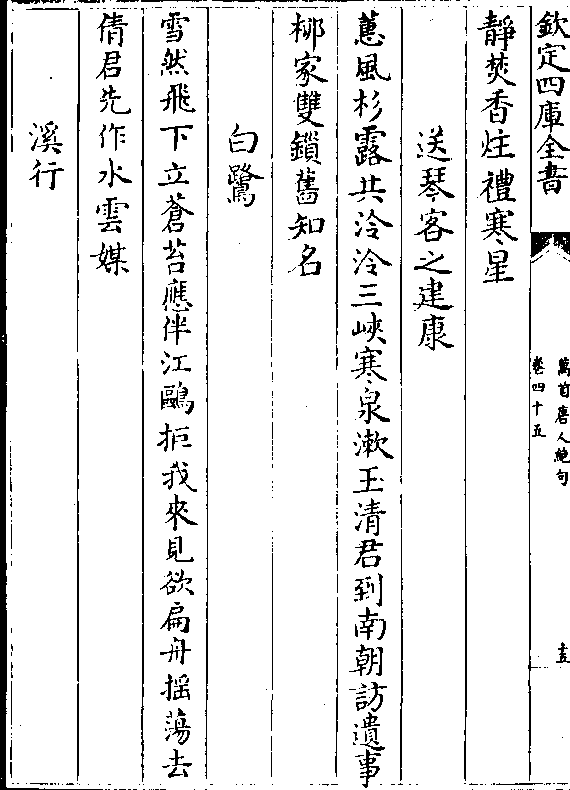 欽定四庫全書
萬首唐人絶句
卷四十五
十五
靜焚香炷禮寒星
送琴客之建康
蕙風杉露共泠泠三峽寒泉漱玉清君到南朝訪遺事
栁家雙鎖舊知名
白鷺
雪然飛下立蒼苔應伴江鷗拒我來見欲扁舟揺蕩去
倩君先作水雲媒
溪行